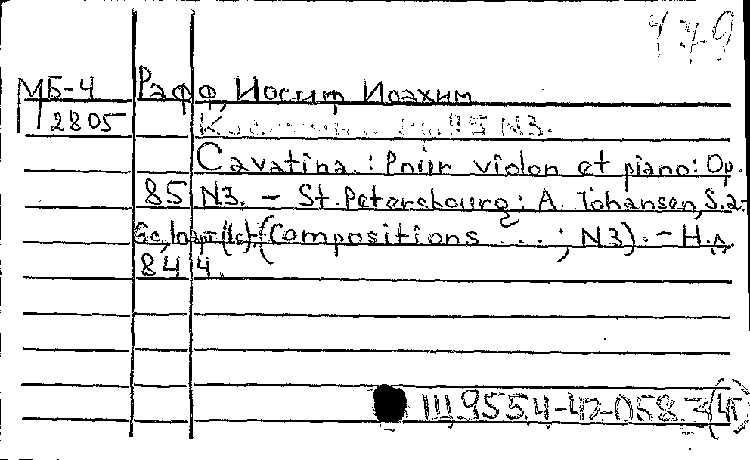 479
МБ-4 Рафф, Иосиф Иоахим
2805 op. 85 N3.
Cavatina.: Pour violon et piano: Op.
85 N3. – St. Petersbourg: A. Johansen, S.a.-
6c. (Compositions ...; N3). – Н.д.
844.
Ш9554-42-058.3(4Г)